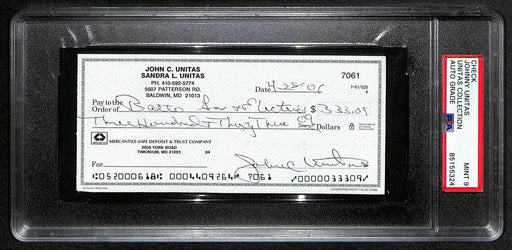 JOHN C. UNITAS
SANDRA L. UNITAS
PH. 410-592-5774
5607 PATTERSON RD.
BALDWIN, MD 21013
7061
7-61/520
4
Date
Pay to the
Order of Balto Gas & Electric $ 333.09
Three Hundred & Thirty Three 09 Dollars
MERCANTILE-SAFE DEPOSIT & TRUST COMPANY
2058 YORK ROAD
TIMONIUM, MD 21093
04
For John C Unitas
052000618 0004409264 7061 0000033309
CHECK
JOHNNY UNITAS
UNITAS COLLECTION
AUTO GRADE
PSA
MINT 9
85155324